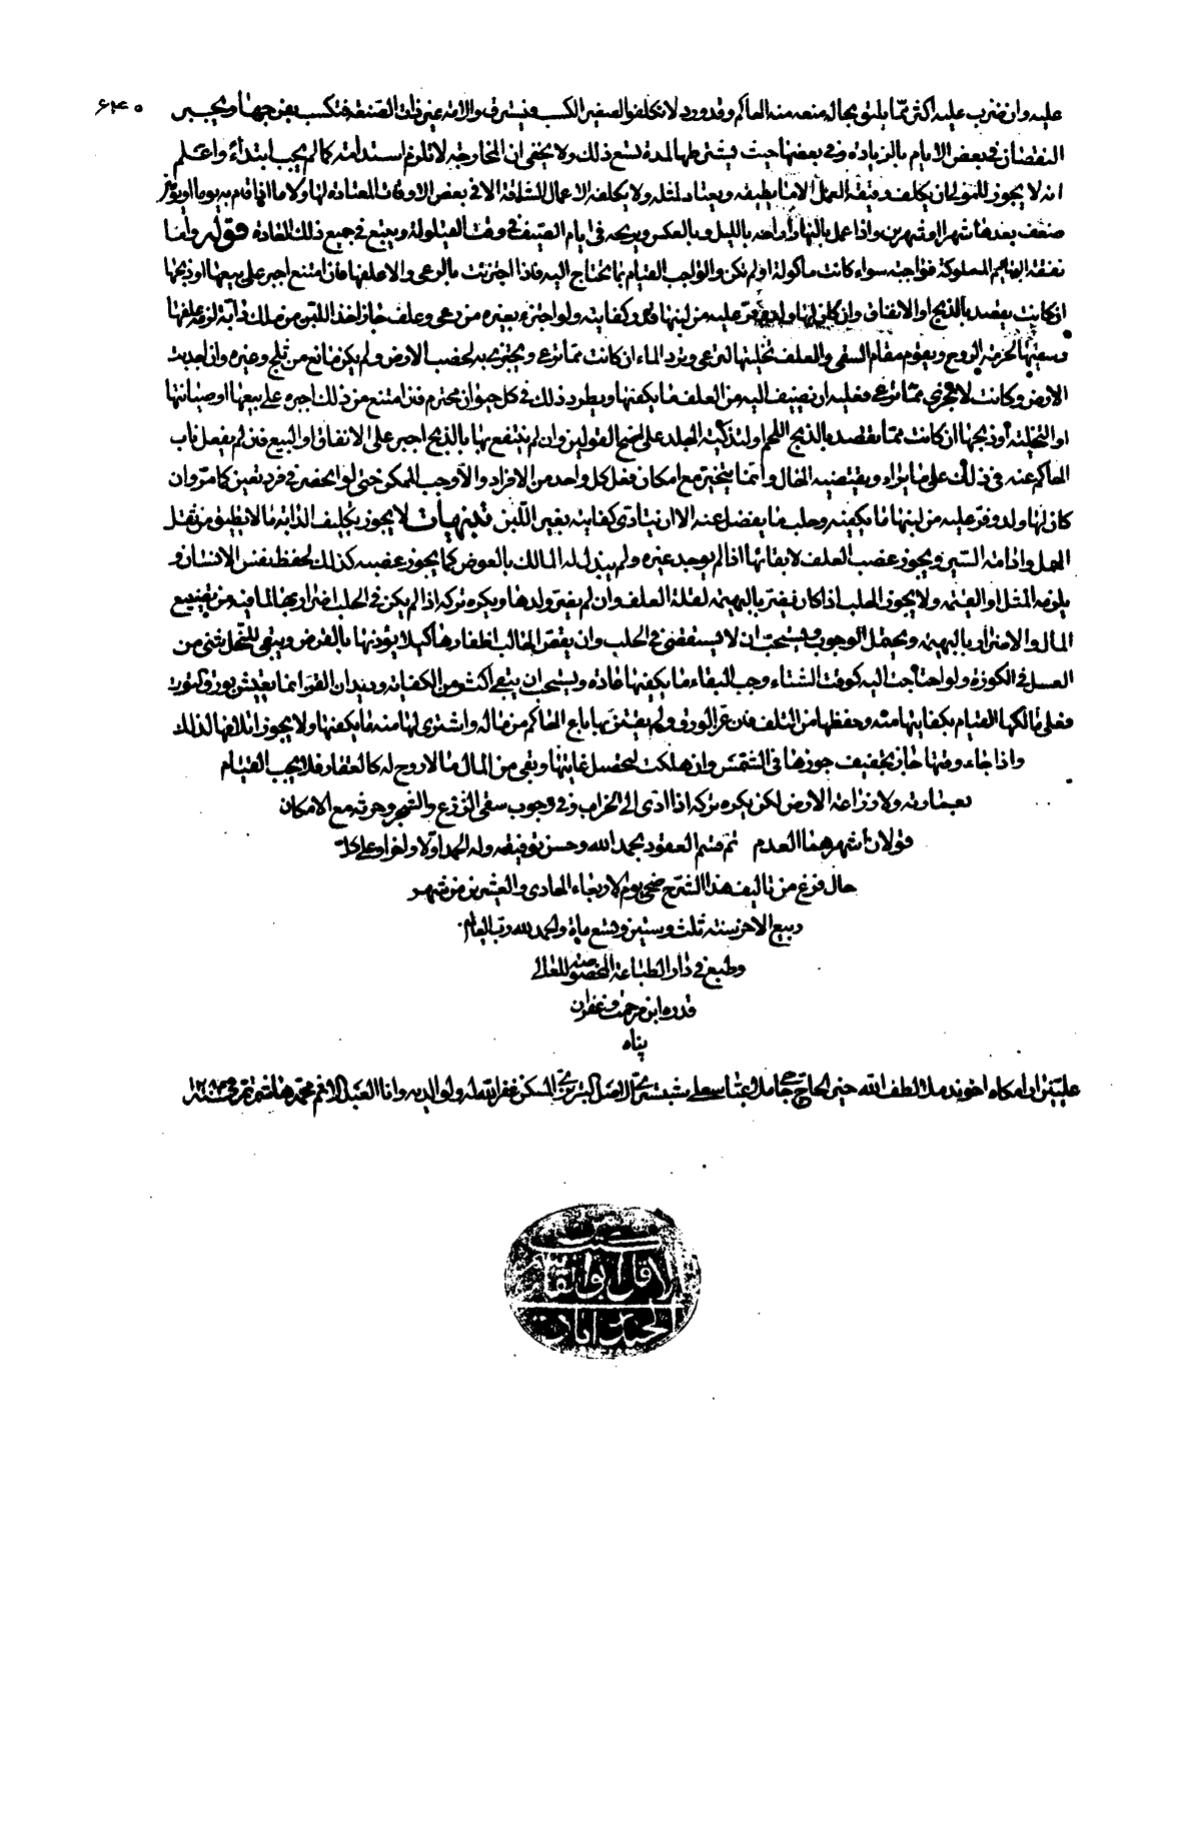 عليه وان ضرب عليه اكثر مما يليق بحاله منعه منه الحاكم وقد ورد لا تكلفوا الصغير الكسب فيسرق والامة غير ذات الصنعة فتكسب بفرجها ويجبر ۶۴۰
النقصان في بعض الايام بالزيادة في بعضها حيث يشترطها لمدة تسع ذلك ولا يخفى ان المخارجة لا تلزم استدامته كما لم يجب ابتداءً واعلم
انه لا يجوز للمولى ان يكلف رقيقه العمل الا ما يطيقه ويعتاد لمثله ولا يكلفه الاعمال الشاقة الا في بعض الاوقات المعتادة لها ولا ما اذا قام به يوما او يومين
ضعف بعدها شهرا او شهرين واذا عمل بالنهار اراحه بالليل وبالعكس ويريحه في ايام الصيف في وقت القيلولة ويتبع في جميع ذلك العادة قوله واما
نفقة البهائم المملوكة فواجبة سواء كانت ماكولة او لم تكن والواجب القيام بما يحتاج اليه فاذا اجتزئت بالرعي والا علفها فان امتنع اجبر على بيعها او ذبحها
ان كانت يقصد بالذبح او الانفاق وان كان لها ولد وفر عليه من لبنها قدر كفايته ولو اجتزء بغيره من رعي وعلف جاز اخذ اللبن من ملك دابة لزمه علفها
وسقيها لحرمة الروح ويقوم مقام السقي والعلف تخليتها لترعى وترد الماء ان كانت مما ترعى ويجتزئ به لخصب الارض ولم يكن مانع من ثلج وغيره وان اجدبت
الارض وكانت لا تجتزى مما ترعى فعليه ان يضيف اليه من العلف ما يكفيها ويطرد ذلك في كل حيوان محترم فمن امتنع من ذلك اجبره على بيعها او صيانتها
او التخلية او ذبحها ان كانت مما يقصد بالذبح اللحم او لتذكية الجلد على اصح القولين وان لم ينتفع بها بالذبح اجبر على الانفاق او البيع فمن لم يفعل ناب
الحاكم عنه في ذلك على ما يراه ويقتضيه الحال وانما يتخير مع امكان فعل كل واحد من الافراد والا وجب الممكن حتى لو انحصر في فرد تعين كما مر وان
كان لها ولد وفر عليه من لبنها ما يكفيه وحلب ما يفضل عنه الا ان يتادى كفايته بغير اللبن تنبيهات لا يجوز تكليف الدابة ما لا تطيق من ثقل
الحمل وادامة السير ويجوز غصب العلف لابقائها اذا لم يوجد غيره ولم يبذله المالك بالعوض كما يجوز غصبه كذلك لحفظ نفس الانسان و
يلزمه المثل او القيمة ولا يجوز الحلب اذا كان يضر بالبهيمة لقلة العلف وان لم يضر ولدها ويكره تركه اذا لم يكن في الحلب اضرار بها لما فيه من تضييع
المال والاضرار بالبهيمة ويحتمل الوجوب ويستحب ان لا يستقصى في الحلب وان يقص الحالب اظفاره كيلا يؤذيها بالقرض ويبقى للنحل شئ من
العسل في الكوارة ولو احتاجت اليه كوقت الشتاء وجب ابقاء ما يكفيها عادة ويستحب ان يبقى اكثر من الكفاية وديدان القز انما يعيش بورق التوت
فعلى مالكها القيام بكفايتها منه وحفظها من التلف فان عز الورق ولم يعتن بها باع الحاكم من ماله واشترى لها منه ما يكفيها ولا يجوز اتلافها لذلك
واذا جاء وقتها جاز تجفيف جوزها في الشمس وان هلكت لتحصل غايتها وبقى من المال ما لا روح له كالعقار فلا يجب القيام
بعمارته ولا زراعة الارض لكن يكره تركه اذا ادى الى الخراب وفي وجوب سقي الزرع والشجر وحرثه مع الامكان
قولان اشهرهما العدم تم قسم العقود بحمد الله وحسن توفيقه وله الحمد اولا واخرا وعلى كل
حال فرغ من تاليف هذا الشرح ضحى يوم الاربعاء الحادى والعشرين من شهر
ربيع الاخر سنة ثلث وستين وتسع ماة والحمد لله رب العالمين
وطبع في دار الطباعة المخصوصة للعالى
قدره ابن مرحمت وغفران
پناه
عليين ارامگاه اخوند ملا لطف الله حتى الحاج وانا العبد الاثم محمد هاشم
الاقل ابو القاسم